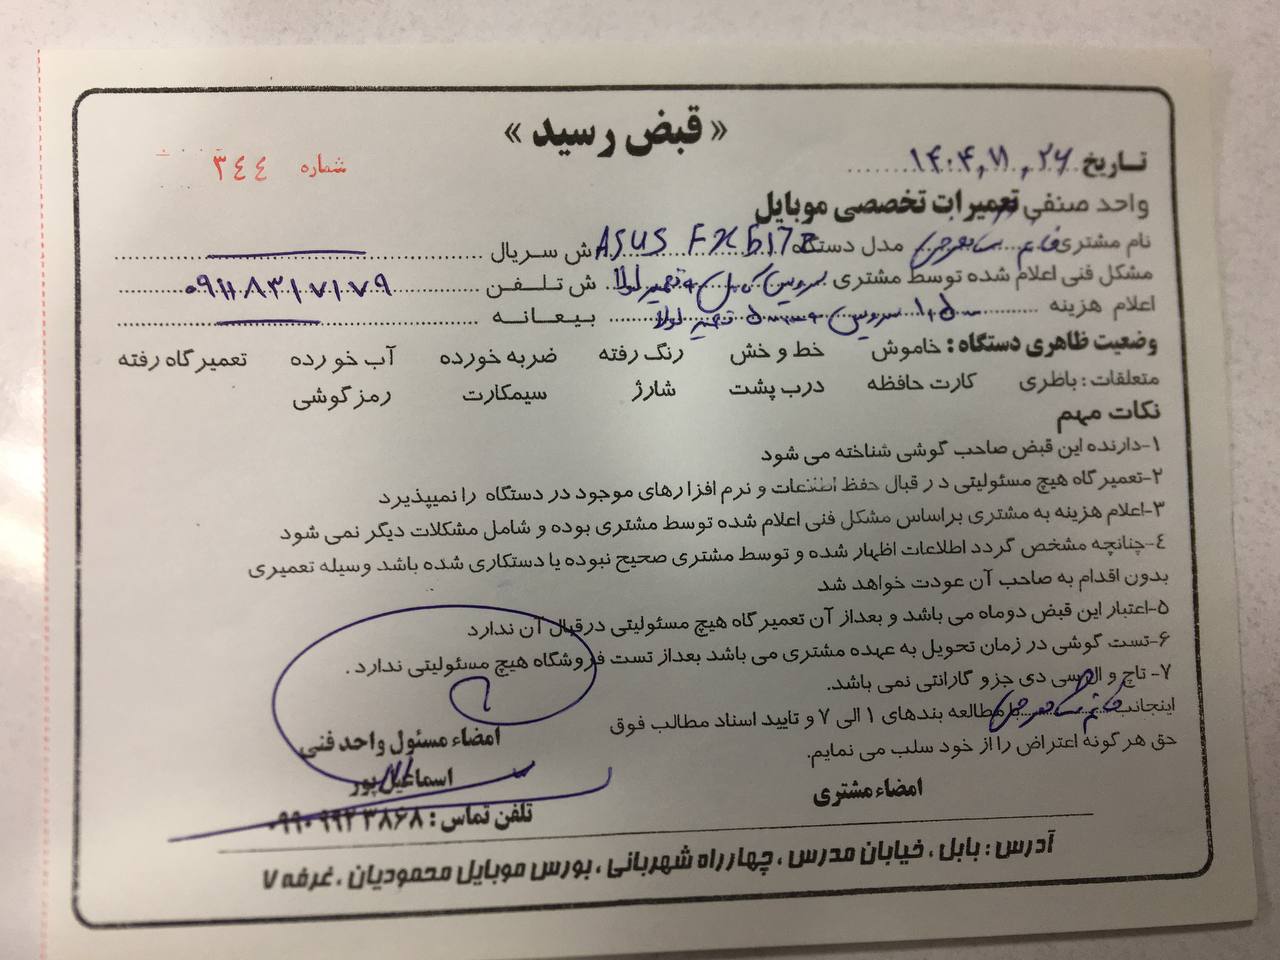 « قبض رسید »
تاریخ ۱۴۰۴,۱۱,۲۶
شماره ۳۴٤
واحد صنفی تعمیرات تخصصی موبایل
نام مشتری خانم مدل دستگاه ASUS FX517Z ش سریال
مشکل فنی اعلام شده توسط مشتری سرویس کامل و تعمیر لولا ش تلفن ۰۹۱۱۸۳۱۷۱۷۹
اعلام هزینه سرویس تعمیر لولا بیعانه
وضعیت ظاهری دستگاه : خاموش خط و خش رنگ رفته ضربه خورده آب خورده تعمیرگاه رفته
متعلقات : باطری کارت حافظه درب پشت شارژ سیمکارت رمز گوشی
نکات مهم
۱-دارنده این قبض صاحب گوشی شناخته می شود
۲-تعمیرگاه هیچ مسئولیتی در قبال حفظ اطلاعات و نرم افزارهای موجود در دستگاه را نمیپذیرد
۳-اعلام هزینه به مشتری براساس مشکل فنی اعلام شده توسط مشتری بوده و شامل مشکلات دیگر نمی شود
٤-چنانچه مشخص گردد اطلاعات اظهار شده و توسط مشتری صحیح نبوده یا دستکاری شده باشد وسیله تعمیری
بدون اقدام به صاحب آن عودت خواهد شد
۵-اعتبار این قبض دوماه می باشد و بعداز آن تعمیرگاه هیچ مسئولیتی درقبال آن ندارد
۶-تست گوشی در زمان تحویل به عهده مشتری می باشد بعداز تست فروشگاه هیچ مسئولیتی ندارد .
۷- تاچ و ال سی دی جزو گارانتی نمی باشد.
اینجانب خانم با مطالعه بندهای ۱ الی ۷ و تایید اسناد مطالب فوق
حق هرگونه اعتراض را از خود سلب می نمایم.
امضاء مشتری
امضاء مسئول واحد فنی
اسماعیل پور
تلفن تماس : ۰۹۹۰۹۹۲۳۸۶۸
آدرس : بابل ، خیابان مدرس ، چهارراه شهربانی ، بورس موبایل محمودیان ، غرفه ۷